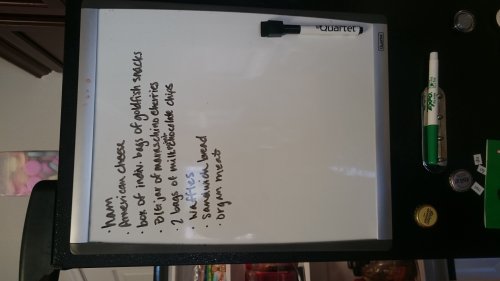 ham
• American cheese
• box of indiv. bags of goldfish snacks
• BIG jar of maraschino cherries
• 2 bags of milk mint chocolate chips
• Waffles
• Sandwich bread
• organ meat
Quartet
Quartet
EXPO